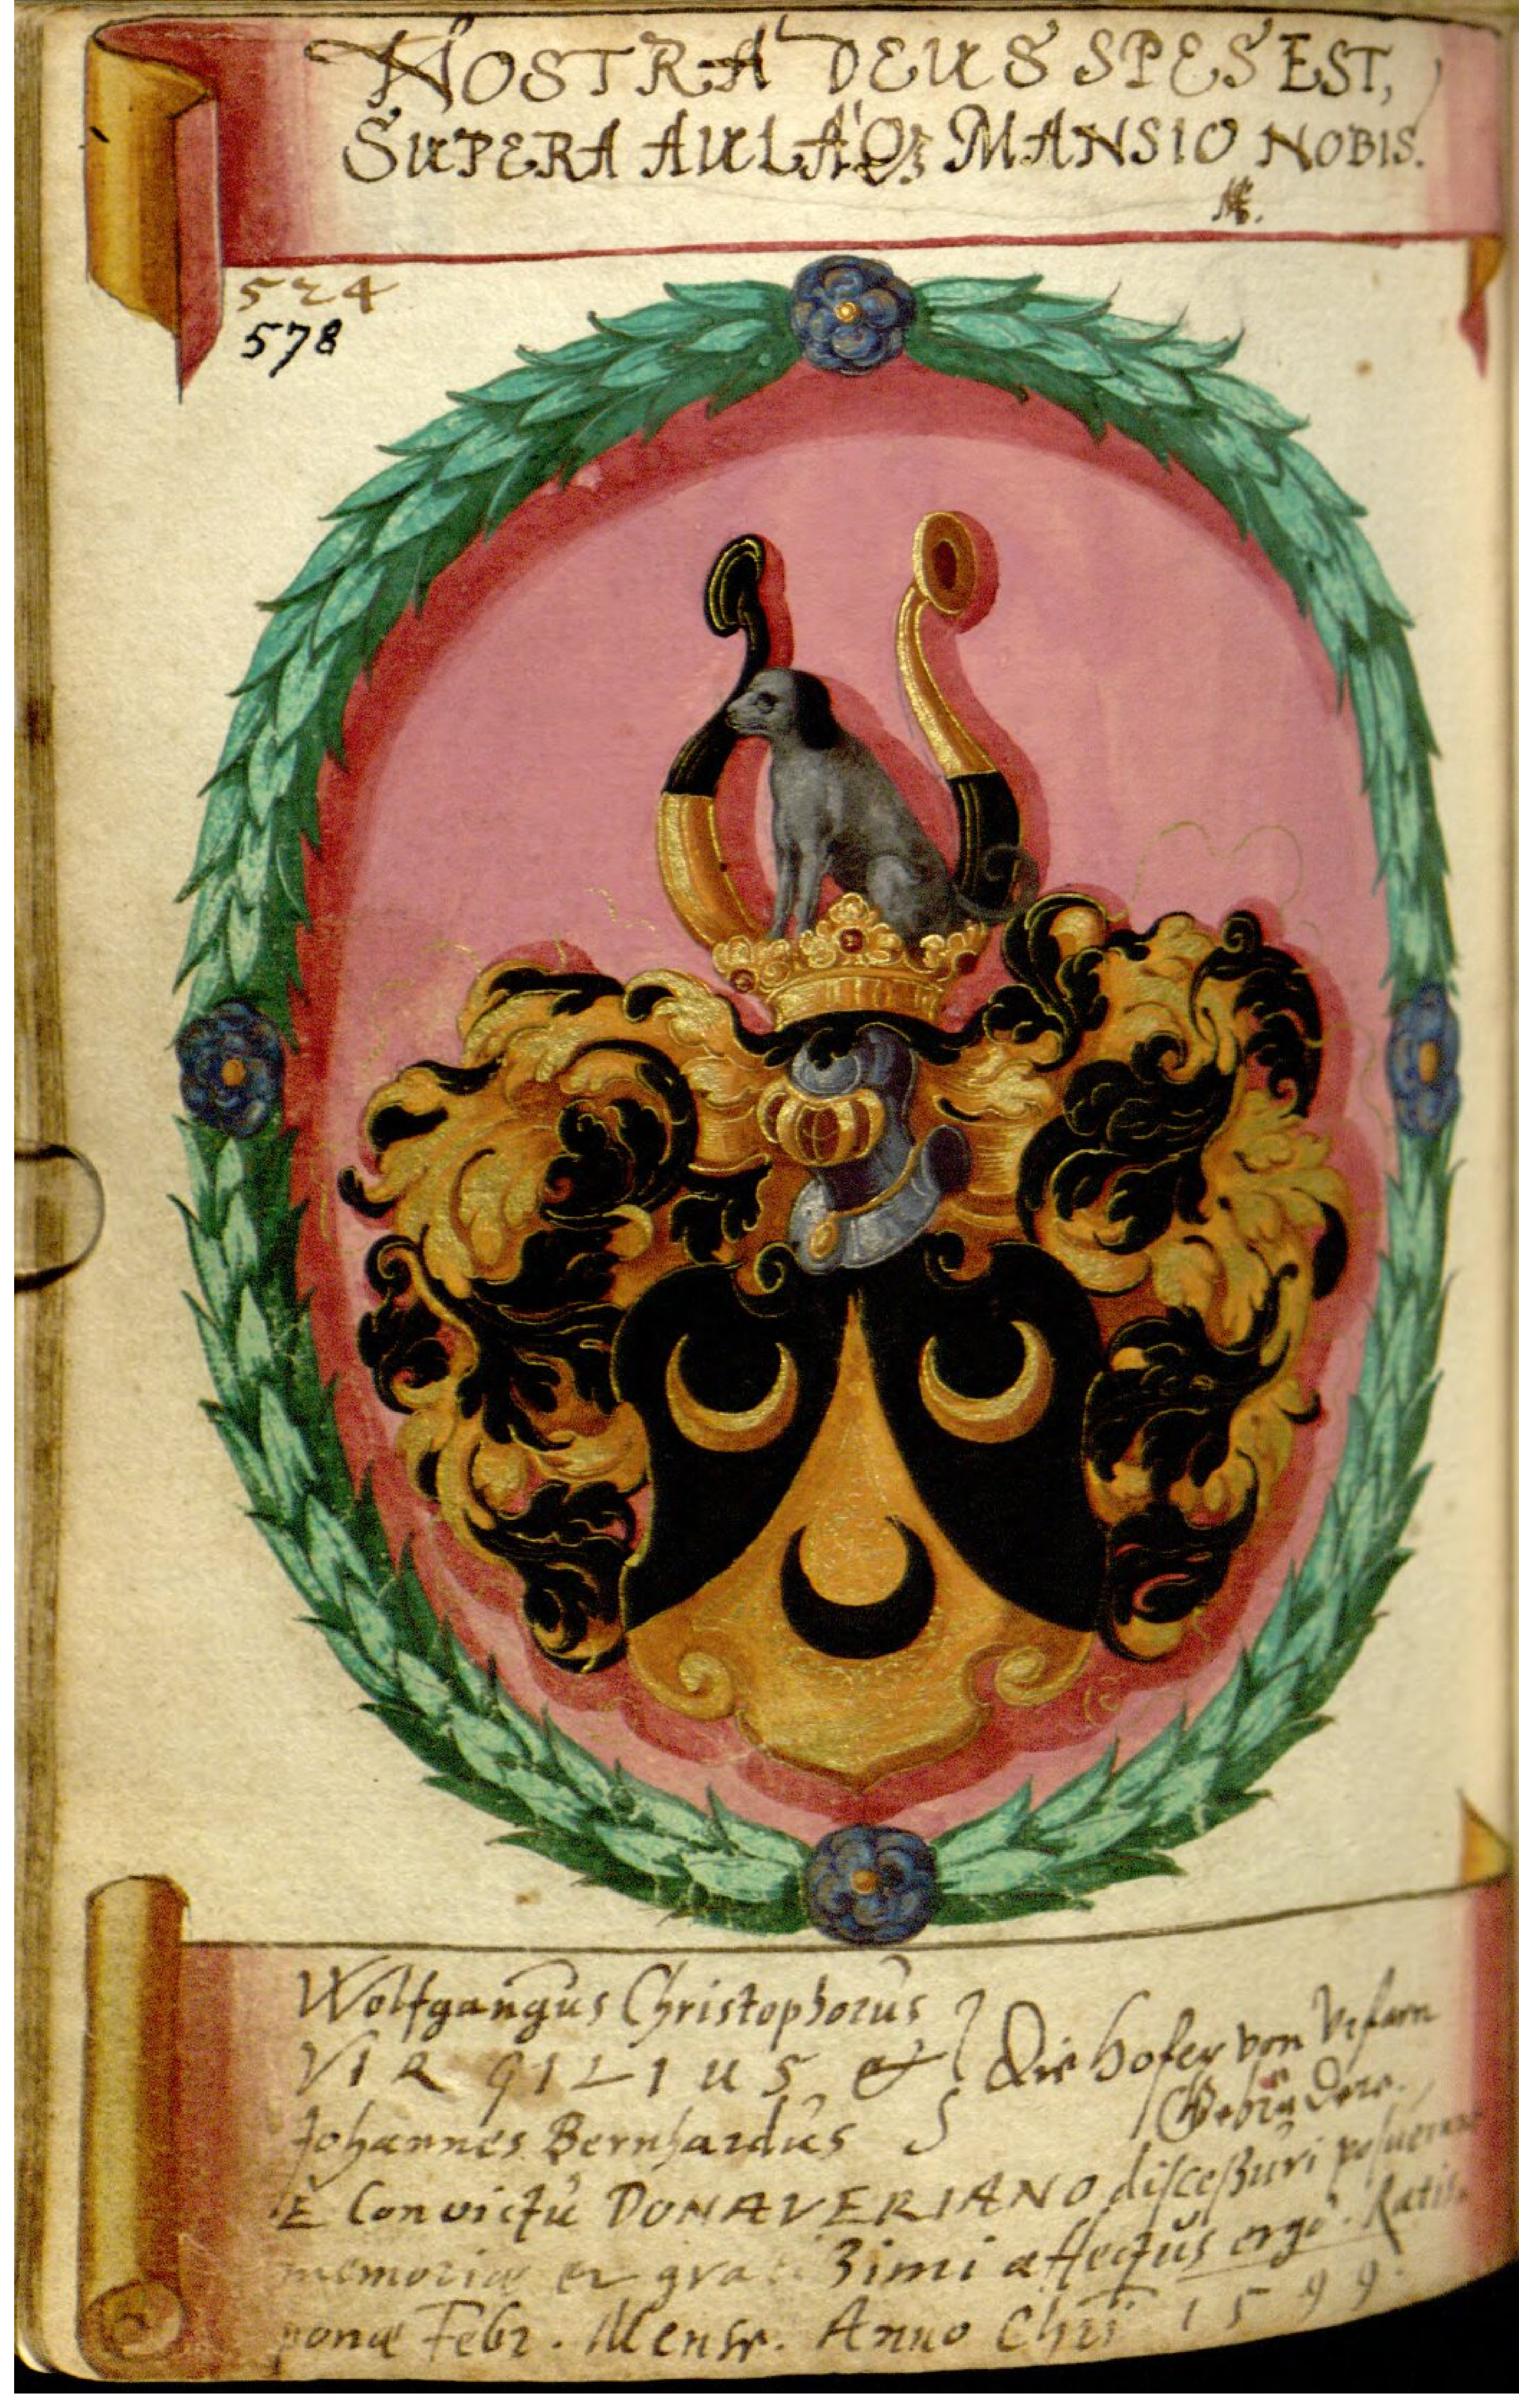 NOSTRA DEUS SPES EST,
SUPERA AULAQ₃ MANSIO NOBIS.
524
578
Wolfgangus Christophorus
VIRGILIUS &
Die Hofer von Urfarn
Johannes Bernhardus
Gebrüdere.
E Convictu DONAVERIANO discessuri posuerunt
memoriæ et gra zimi affectus ergo. Ratis
ponæ Febr. Mense. Anno Chri 1599.